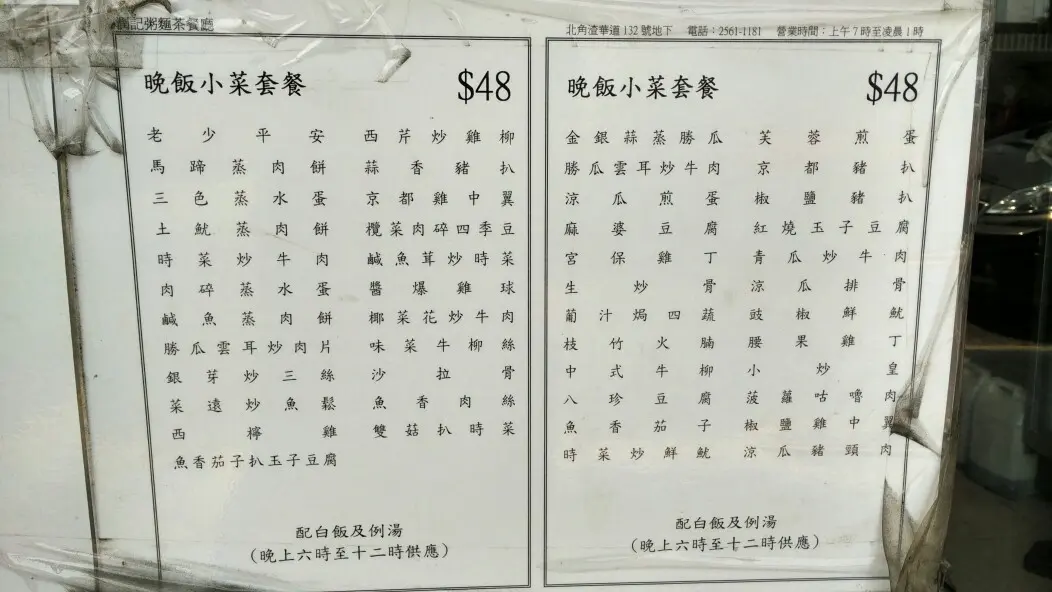 記粥麵茶餐廳
北角渣華道132號地下 電話：2561-1181 營業時間：上午7時至凌晨1時
晚飯小菜套餐 $48
老少平安 西芹炒雞柳
馬蹄蒸肉餅 蒜香豬扒
三色蒸水蛋 京都雞中翼
土魷蒸肉餅 欖菜肉碎四季豆
時菜炒牛肉 鹹魚茸炒時菜
肉碎蒸水蛋 醬爆雞球
鹹魚蒸肉餅 椰菜花炒牛肉
勝瓜雲耳炒肉片 味菜牛柳絲
銀芽炒三絲 沙拉骨
菜遠炒魚鬆 魚香肉絲
西檸雞 雙菇扒時菜
魚香茄子扒玉子豆腐
配白飯及例湯
（晚上六時至十二時供應）
晚飯小菜套餐 $48
金銀蒜蒸勝瓜 芙蓉煎蛋
勝瓜雲耳炒牛肉 京都豬扒
涼瓜煎蛋 椒鹽豬扒
麻婆豆腐 紅燒玉子豆腐
宮保雞丁 青瓜炒牛肉
生炒骨 涼瓜排骨
葡汁焗四蔬 豉椒鮮魷
枝竹火腩 腰果雞丁
中式牛柳 小炒皇
八珍豆腐 菠蘿咕嚕肉
魚香茄子 椒鹽雞中翼
時菜炒鮮魷 涼瓜豬頸肉
配白飯及例湯
（晚上六時至十二時供應）